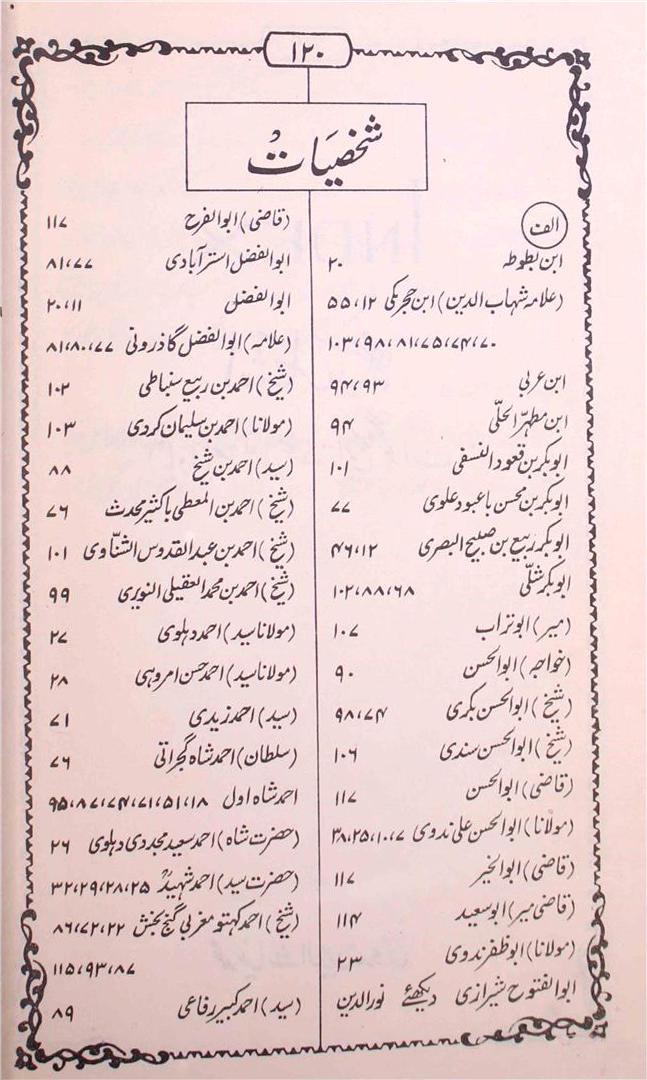 ۱۲۰
شخصیات
الف
ابن بطوطہ ۲۰
(علامہ شہاب الدین) ابن حجر مکی ۱۲، ۵۵
۷۰، ۷۴، ۷۵، ۸۱، ۹۸، ۱۰۳
ابن عربی ۹۳، ۹۴
ابن مطہّر الحلّی ۹۴
ابوبکر بن قعود النسفی ۱۰۱
ابوبکر بن محسن باعبود علوی ۷۷
ابوبکر ربیع بن صبیح البصری ۱۲، ۴۶
ابوبکر شلّی ۶۸، ۸۸، ۱۰۲
(میر) ابوتراب ۱۰۷
(خواجہ) ابوالحسن ۹۰
(شیخ) ابوالحسن بکری ۷۴، ۹۸
(شیخ) ابوالحسن سندی ۱۰۶
(قاضی) ابوالحسن ۱۱۷
(مولانا) ابوالحسن علی ندوی ۷، ۱۰، ۲۵، ۳۸
(قاضی) ابوالخیر ۱۱۷
(قاضی میر) ابوسعید ۱۱۴
(مولانا) ابوظفر ندوی ۲۳
ابوالفتوح شیرازی دیکھئے نورالدین
(قاضی) ابوالفرح ۱۱۷
ابوالفضل استرآبادی ۷۷، ۸۱
ابوالفضل ۱۱، ۲۰
(علامہ) ابوالفضل گاذرونی ۷۷، ۸۰، ۸۱
(شیخ) احمد بن ربیع سنباطی ۱۰۲
(مولانا) احمد بن سلیمان کردی ۱۰۳
(سید) احمد بن شیخ ۸۸
(شیخ) احمد بن المعطی باکثیر محدث ۷۶
(شیخ) احمد بن عبدالقدوس الشنّاوی ۱۰۱
(شیخ) احمد بن محمد العقیلی النویری ۹۹
(مولانا سید) احمد دہلوی ۲۷
(مولانا سید) احمد حسن امروہی ۲۸
(سید) احمد زیدی ۷۱
(سلطان) احمد شاہ گجراتی ۷۶
احمد شاہ اول ۱۸، ۵۱، ۷۱، ۷۴، ۸۷، ۹۵
(حضرت شاہ) احمد سعید مجددی دہلوی ۲۶
(حضرت سید) احمد شہیدؒ ۲۵، ۲۸، ۲۹، ۳۲
(شیخ) احمد کھتو مغربی گنج بخش ۲۲، ۷۲، ۸۶
۸۷، ۹۳، ۱۱۵
(سید) احمد کبیر رفاعی ۸۹